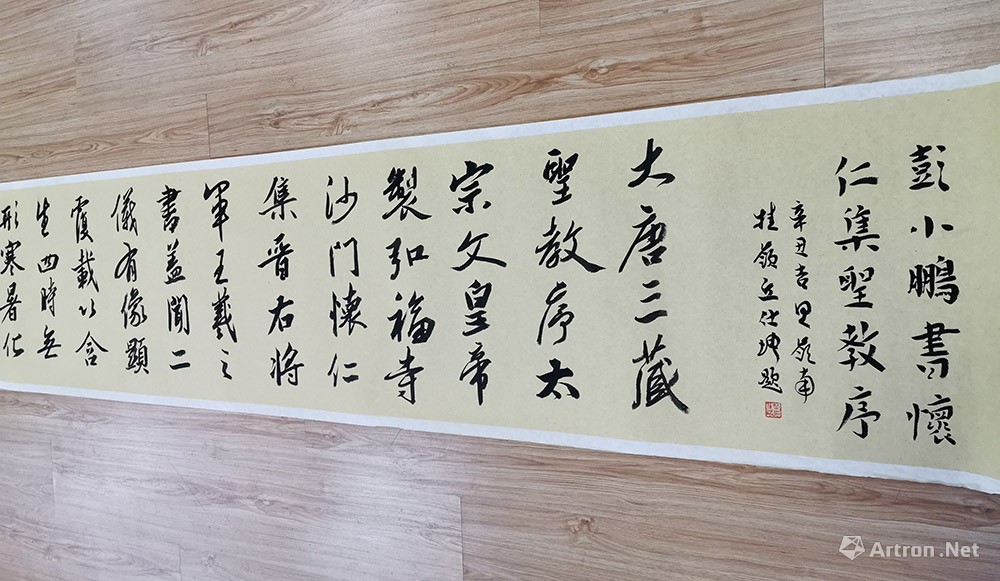 彭小鹏書懷
仁集聖教序
辛丑吉旦嶺南
桂嶺丘仕坤題
大唐三藏
聖教序太
宗文皇帝
製弘福寺
沙門懷仁
集晉右將
軍王羲之
書蓋聞二
儀有像顯
覆載以含
生四時無
形寒暑化
Artron.Net